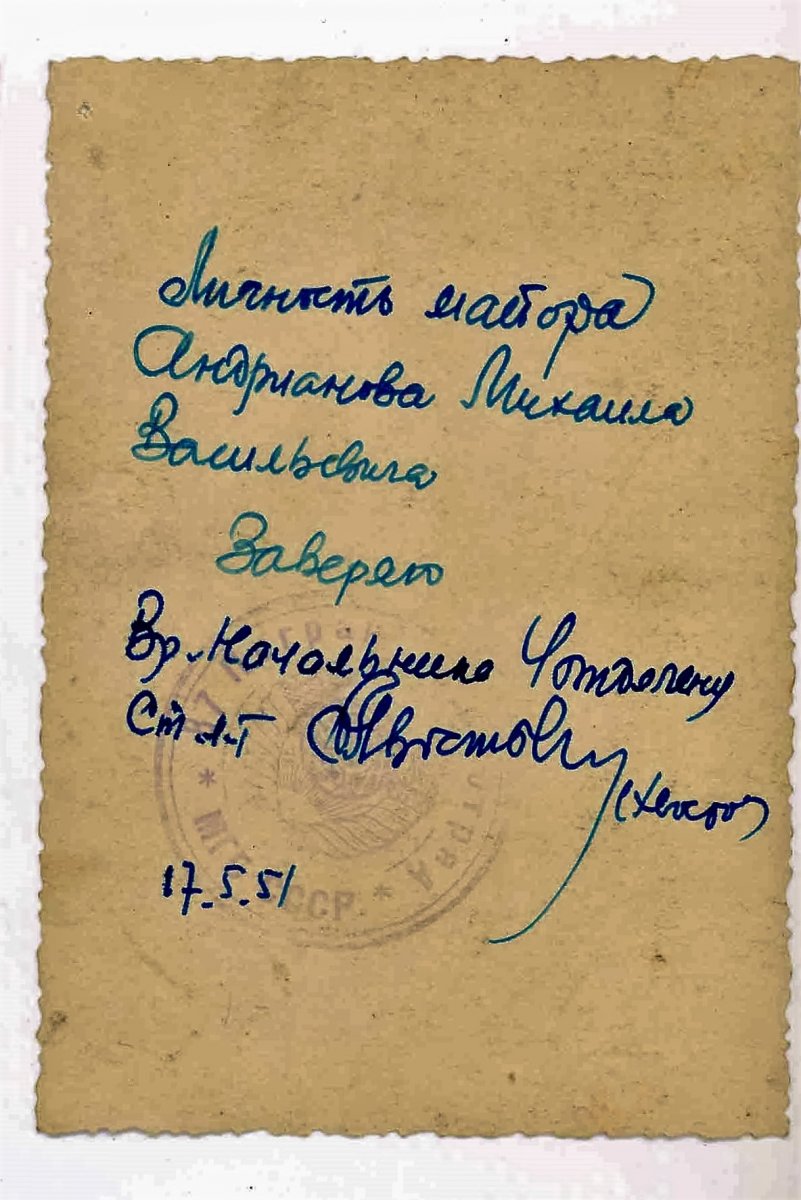 Личность майора
Андрианова Михаила
Васильевича
Заверяю
Вр. Начальника 4 отделени
Ст л-т
(Хвостов)
17.5.51
* МГБ СССР. *